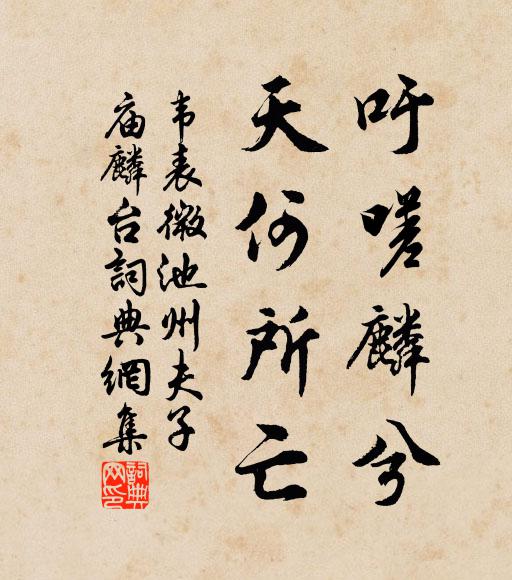 吁嗟麟兮
天何所亡
韦表微池州夫子
庙麟台詞典網集
詞典
网印